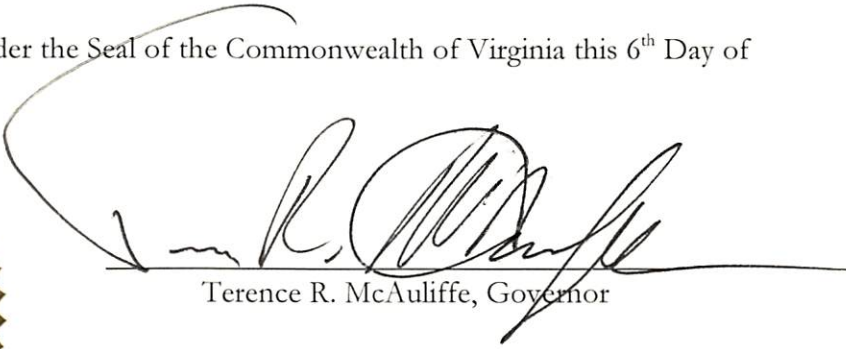 der the Seal of the Commonwealth of Virginia this 6th Day of
Terence R. McAuliffe, Governor